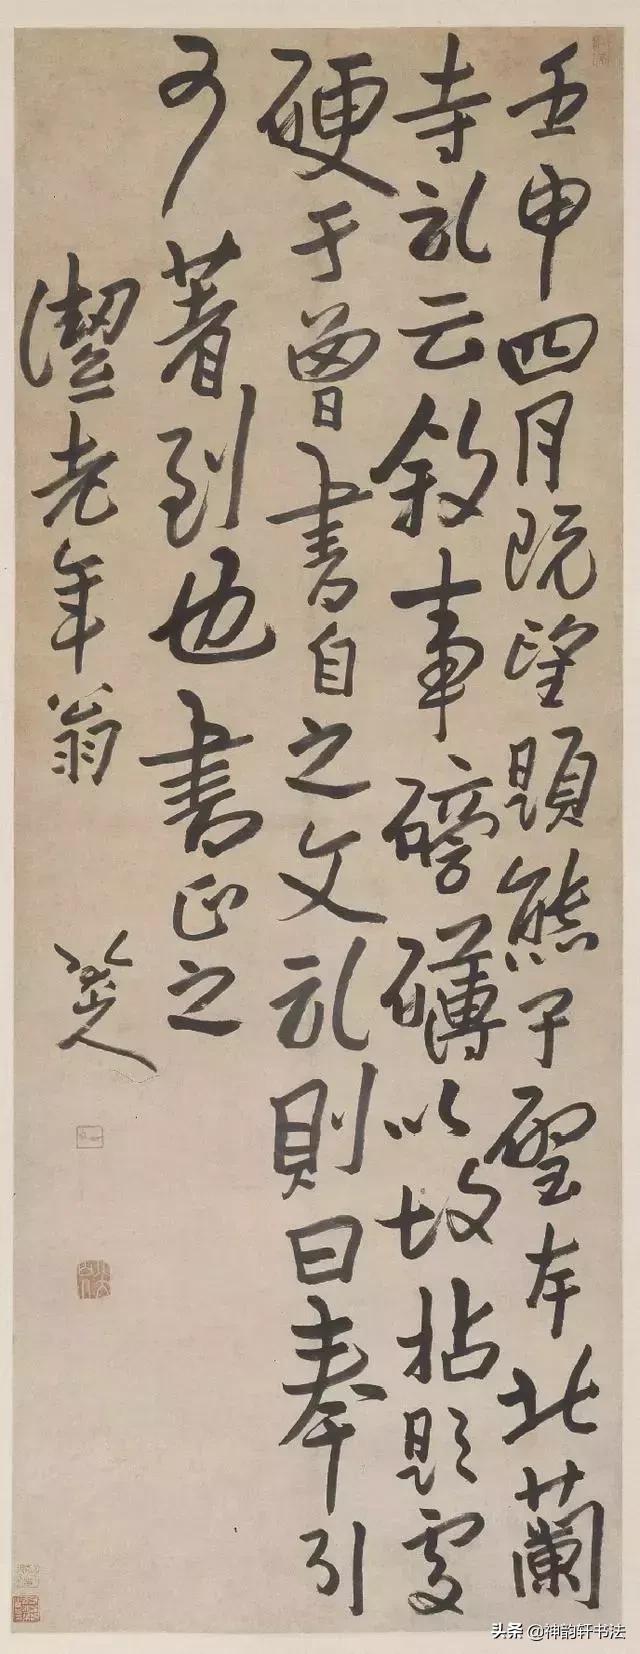 壬申四月既望題熊子聖本北蘭
寺記云敘事磅礴以故拈題處
硬于曾書自之文記則曰奉引
不著到也書正之
老年翁
八大山人
头条@神韵轩书法